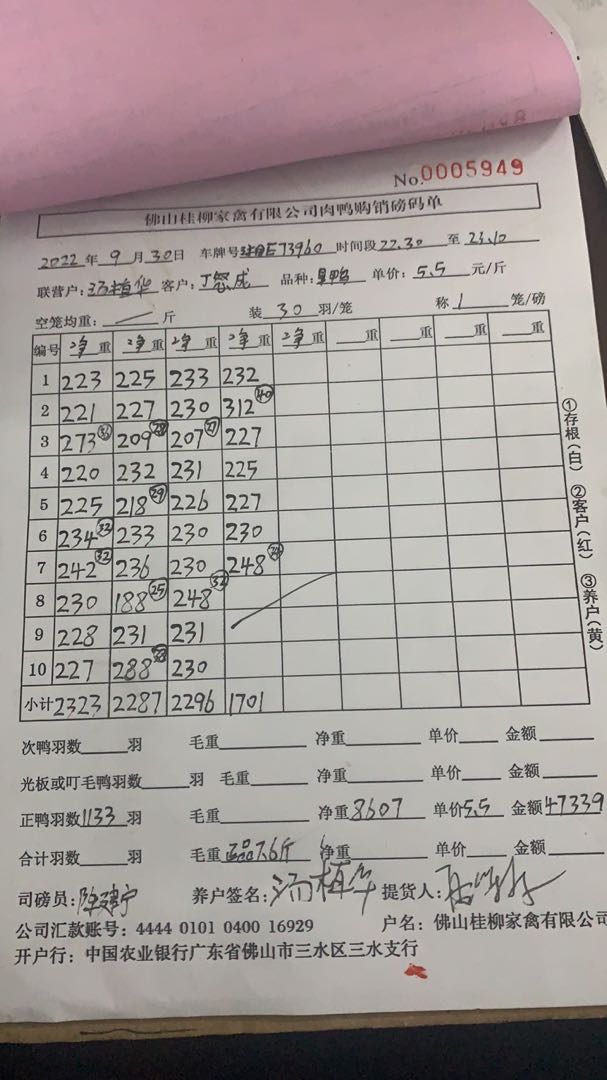 No.0005949
佛山桂柳家禽有限公司肉鸭购销磅码单
2022年9月30日 车牌号E73960 时间段22.30至23.10
联营户:汤植华 客户:丁怒成 品种: 单价:5.5元/斤
空笼均重:一斤 装30羽/笼 称1笼/磅
编号 净重 净重 净重 净重 净重 重 重 重 重
1 223 225 233 232
2 221 227 230 312㊵
3 273㊱ 209㉘ 207㉗ 227
4 220 232 231 225
5 225 218㉙ 226 227
6 234㉜ 233 230 230
7 242㉜ 236 230 248
8 230 188㉕ 248㉜
9 228 231 231
10 227 288㊳ 230
小计 2323 2287 2296 1701
①存根(白) ②客户(红) ③养户(黄)
次鸭羽数 羽 毛重 净重 单价 金额
光板或叮毛鸭羽数 羽 毛重 净重 单价 金额
正鸭羽数1133羽 毛重 净重8607 单价5.5 金额47339
合计羽数 羽 毛重正品7.6斤 净重 单价 金额
司磅员:陈建宁 养户签名:汤植华 提货人:
公司汇款账号:4444 0101 0400 16929 户名:佛山桂柳家禽有限公司
开户行:中国农业银行广东省佛山市三水区三水支行